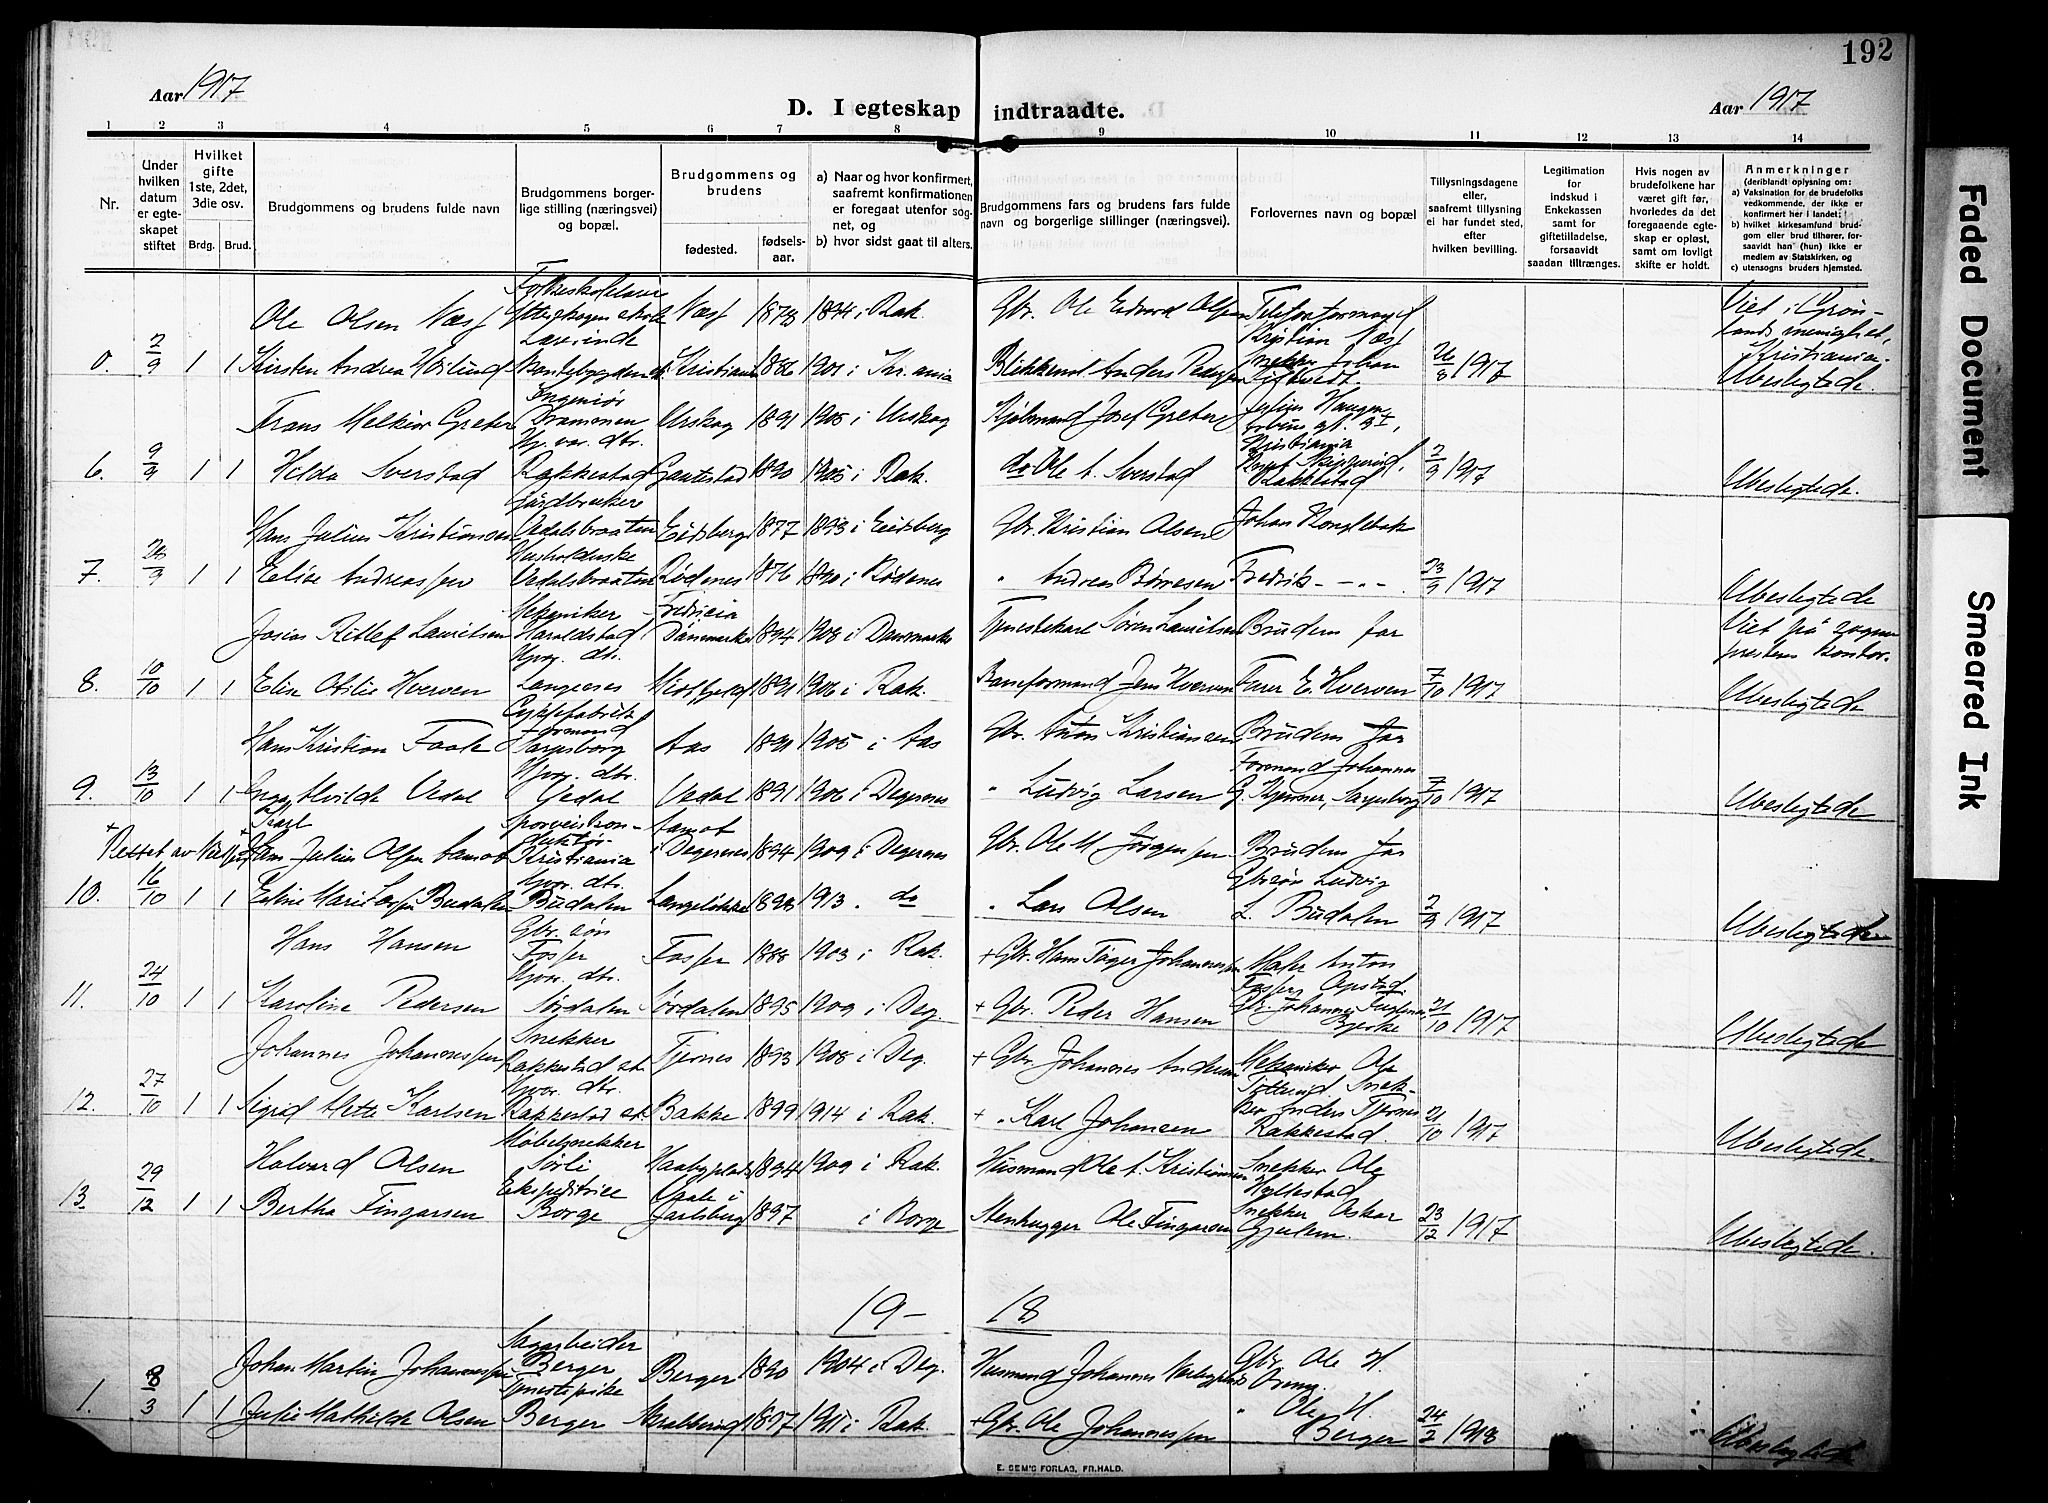 192
Aar 1917
D. I egteskap indtraadte.
Aar 1917
1 2 3 4 5 6 7 8 9 10 11 12 13 14
Nr.
Under hvilken datum er egteskapet stiftet
Hvilket gifte 1ste, 2det, 3die osv.
Brdg. Brud.
Brudgommens og brudens fulde navn
Brudgommens borgerlige stilling (næringsvei) og bopæl.
Brudgommens og brudens
fødested. fødselsaar.
a) Naar og hvor konfirmert, saafremt konfirmationen er foregaat utenfor sognet, og
b) hvor sidst gaat til alters.
Brudgommens fars og brudens fars fulde navn og borgerlige stillinger (næringsvei).
Forlovernes navn og bopæl
Tillysningsdagene eller, saafremt tillysning ei har fundet sted, efter hvilken bevilling.
Legitimation for indskud i Enkekassen samt for giftetilladelse, forsaavidt saadan tiltrænges.
Hvis nogen av brudefolkene har været gift før, hvorledes da det foregaaende egteskap er opløst, samt om lovligt skifte er holdt.
Anmerkninger
(deriblandt oplysning om:
a) Vaksination for de brudefolks vedkommende, der ikke er konfirmert her i landet;
b) hvilket kirkesamfund brudgom eller brud tilhører, forsaavidt han (hun) ikke er medlem av Statskirken, og
c) utensogns bruders hjemsted.
Ole Olsen Næss Næss 1878 1894 i Rak. Gbr. Ole Edvard Olsen Kristian Næss Viet i Grønlands menighet, Kristiania.
2/9 1 1 Kirsten Andrea Lærerinde Kristiania 1886 1901 i Kr.ania Anders Pedersen Snekker Johan 26/8 1917 Ubeslegtede.
Frans Melkior Greter Ingeniør Drammen Urskog 1891 1905 i Urskog Kjøbmand Josef Greter Julius Haugen Kristiania
6. 9/9 1 1 Hilda Sverstad Hjv. dtr. Rakkestad Gautestad 1890 1905 i Rak. do Ole A. Sverstad Rakkestad 2/9 1917 Ubeslegtede.
Hans Julius Kristiansen Gardbruker Vedalsbraaten Eidsberg 1877 1893 i Eidsberg Gbr. Kristian Olsen Johan Konglebæk
7. 9 1 1 Eelise Andreassen Husholderske Vedalsbraaten Rødenes 1876 1890 i Rødenes " Andreas Børresen Fredrik -"- 23/9 1917 Ubeslegtede
Josias Ritlef Lauritsen Mekaniker Haraldstad Fredricia Danmark 1894 1908 i Danmark Tjenestekarl Søren Lauritsen Brudens far Viet på sogneprestens kontor.
8. 10/10 1 1 Elise Otilie Hverven Hjv. dtr. Langenes 1891 1906 i Rak. Baneformand Jens Hverven Fruer E. Hverven 7/10 1917 Ubeslegtede
Hans Kristian Faale Cyklefabrik formand Sarpsborg Aas 1891 1905 i Aas Gbr. Anton Kristiansen Brudens far
9. 13/10 1 1 Inga Alvilde Vedal Hjv. dtr. Vedal Vedal 1891 1906 i Degernes " Ludvig Larsen Formand Johannes G. Kjerner, Sarpsborg 7/10 1917 Ubeslegtede
+ Rettet av
+ Karl Julius Olsen Aamot Sporveiskonduktør Kristiania Aamot i Degernes 1894 1909 i Degernes Gbr. Ole M. Jørgensen Brudens far
10. 16/10 1 1 Eline Marie Larsen Budalen Hjv. dtr. Budalen Langeløkke 1898 1913 " do " Lars Olsen Gbrsøn Ludvig L. Budalen 2/9 1917 Ubeslegtede
Hans Hansen Gbr. søn Fosser Fosser 1888 1903 i Rak. + Gbr. Hans Tager Johannessen Anton Fosser Opstad.
11. 24/10 1 1 Karoline Pedersen Hjv. dtr. Sørdalen Sørdalen 1895 1909 i Deg. + Gbr. Peder Hansen Gbr. Johannes Bjerke 21/10 1917 Ubeslegtede
Johannes Johannessen Snekker Rakkestad st. Tjernes 1893 1908 i Deg. + Gbr. Johannes Andersen Mekaniker Ole
12. 27/10 1 1 Sigrid Alette Karlsen Hjv. dtr. Rakkestad st. Bakke 1899 1914 i Rak. + " Karl Johansen Snekker Anders Tjernes Rakkestad. 21/10 1917 Ubeslegtede.
Halvard Olsen Møbelsnekker Sørli Haabyplads 1894 1909 i Rak. Husmand Ole A. Kristiansen Snekker Ole Hyllestad
13. 29/12 1 1 Bertha Fingarsen Ekspeditrice Borge Vaale i Jarlsberg 1897 i Borge Stenhugger Ole Fingarsen Snekker Oskar Gjulem. 23/12 1917 Ubeslegtede.
19- 18
Johan Martin Johannessen Sagarbeider Berger Berger 1890 1904 i Deg. Husmand Johannes Gbr. Ole H.
1. 8/3 1 1 Julie Mathilde Olsen Tjenestepike Berger 1897 1911 i Rak. + Gbr. Ole Johannessen " Ole H. Berger 24/2 1918 Ubeslegtede
E. SEM'S FORLAG, FR.HALD.
Faded Document
Smeared Ink